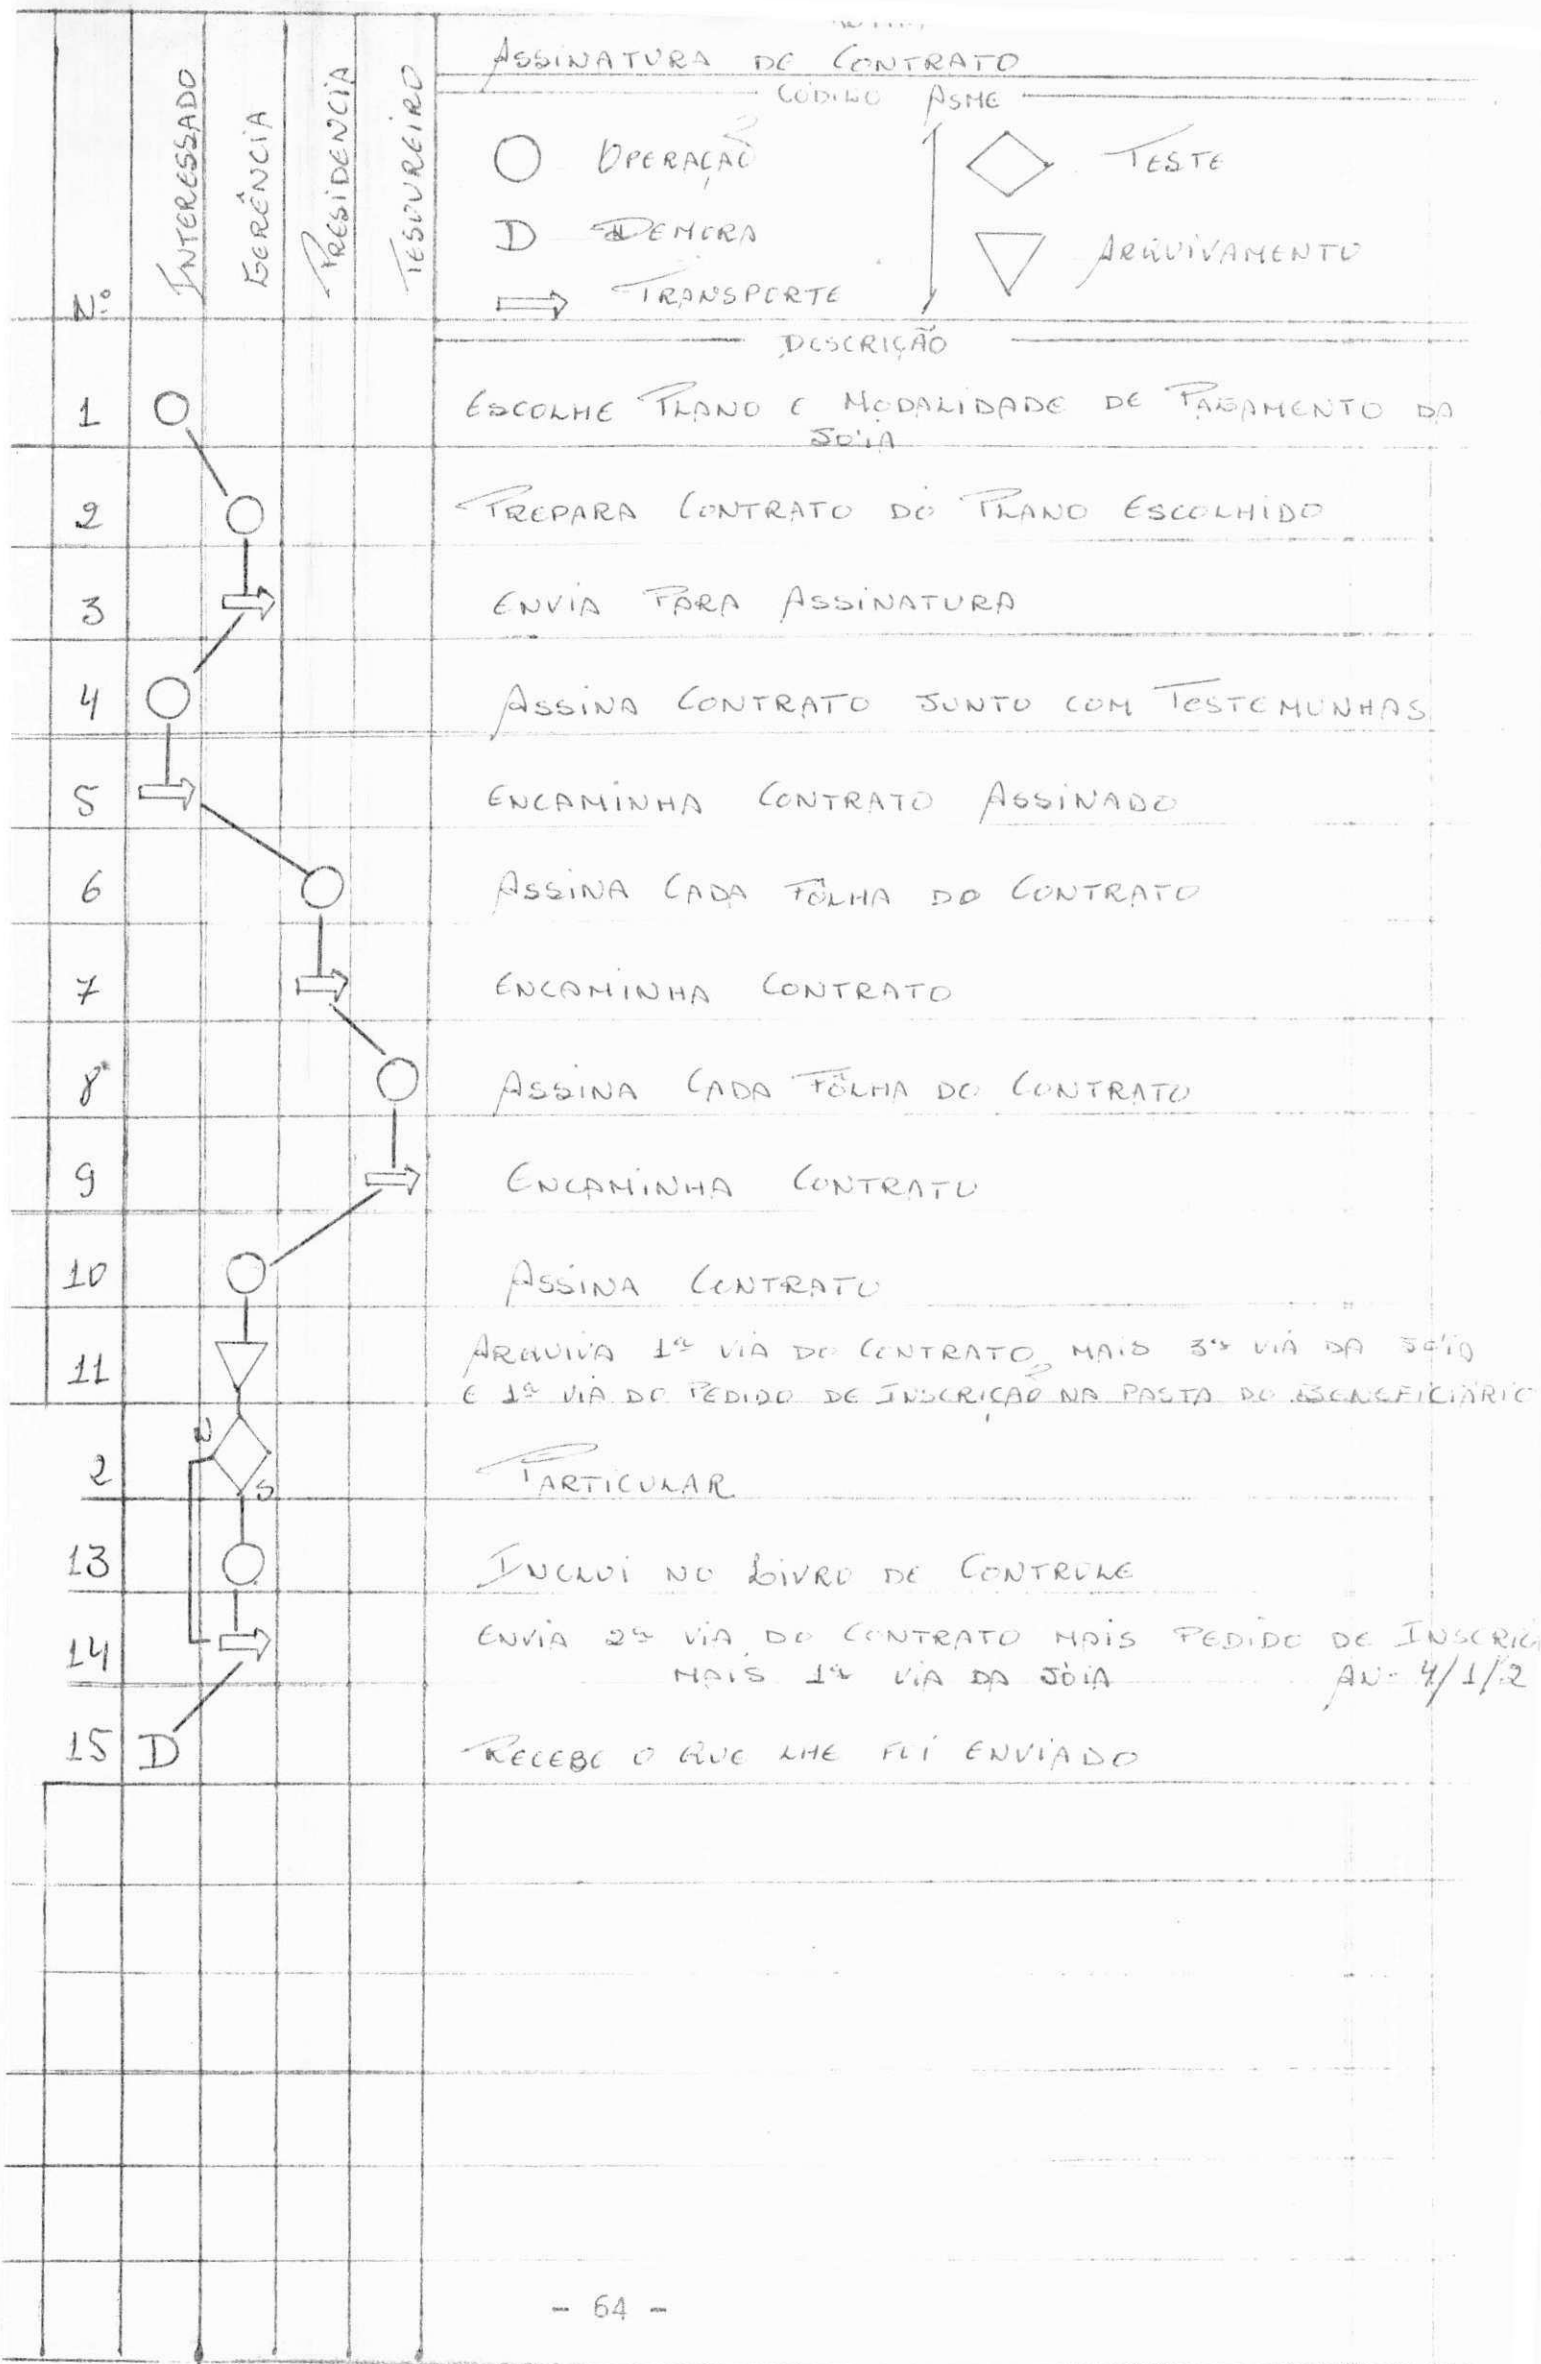 ASSINATURA DE CONTRATO
CÓDIGO ASME
OPERAÇÃO
TESTE
D DEMORA
ARQUIVAMENTO
TRANSPORTE
Nº INTERESSADO GERÊNCIA PRESIDENCIA TESOUREIRO
DESCRIÇÃO
1 ESCOLHE PLANO E MODALIDADE DE PAGAMENTO DA
JÓIA
2 PREPARA CONTRATO DO PLANO ESCOLHIDO
3 ENVIA PARA ASSINATURA
4 ASSINA CONTRATO JUNTO COM TESTEMUNHAS
5 ENCAMINHA CONTRATO ASSINADO
6 ASSINA CADA FÔLHA DO CONTRATO
7 ENCAMINHA CONTRATO
8 ASSINA CADA FÔLHA DO CONTRATO
9 ENCAMINHA CONTRATO
10 ASSINA CONTRATO
11 ARQUIVA 1ª VIA DO CONTRATO, MAIS 3ª VIA DA JÓIA
E 1ª VIA DO PEDIDO DE INSCRIÇÃO NA PASTA DO BENEFICIÁRIO
N
2 PARTICULAR
S
13 INCLUI NO LIVRO DE CONTROLE
14 ENVIA 2ª VIA DO CONTRATO MAIS PEDIDO DE
MAIS 1ª VIA DA JÓIA AN- 4/1/2
15 D RECEBE O QUE LHE FOI ENVIADO
- 64 -